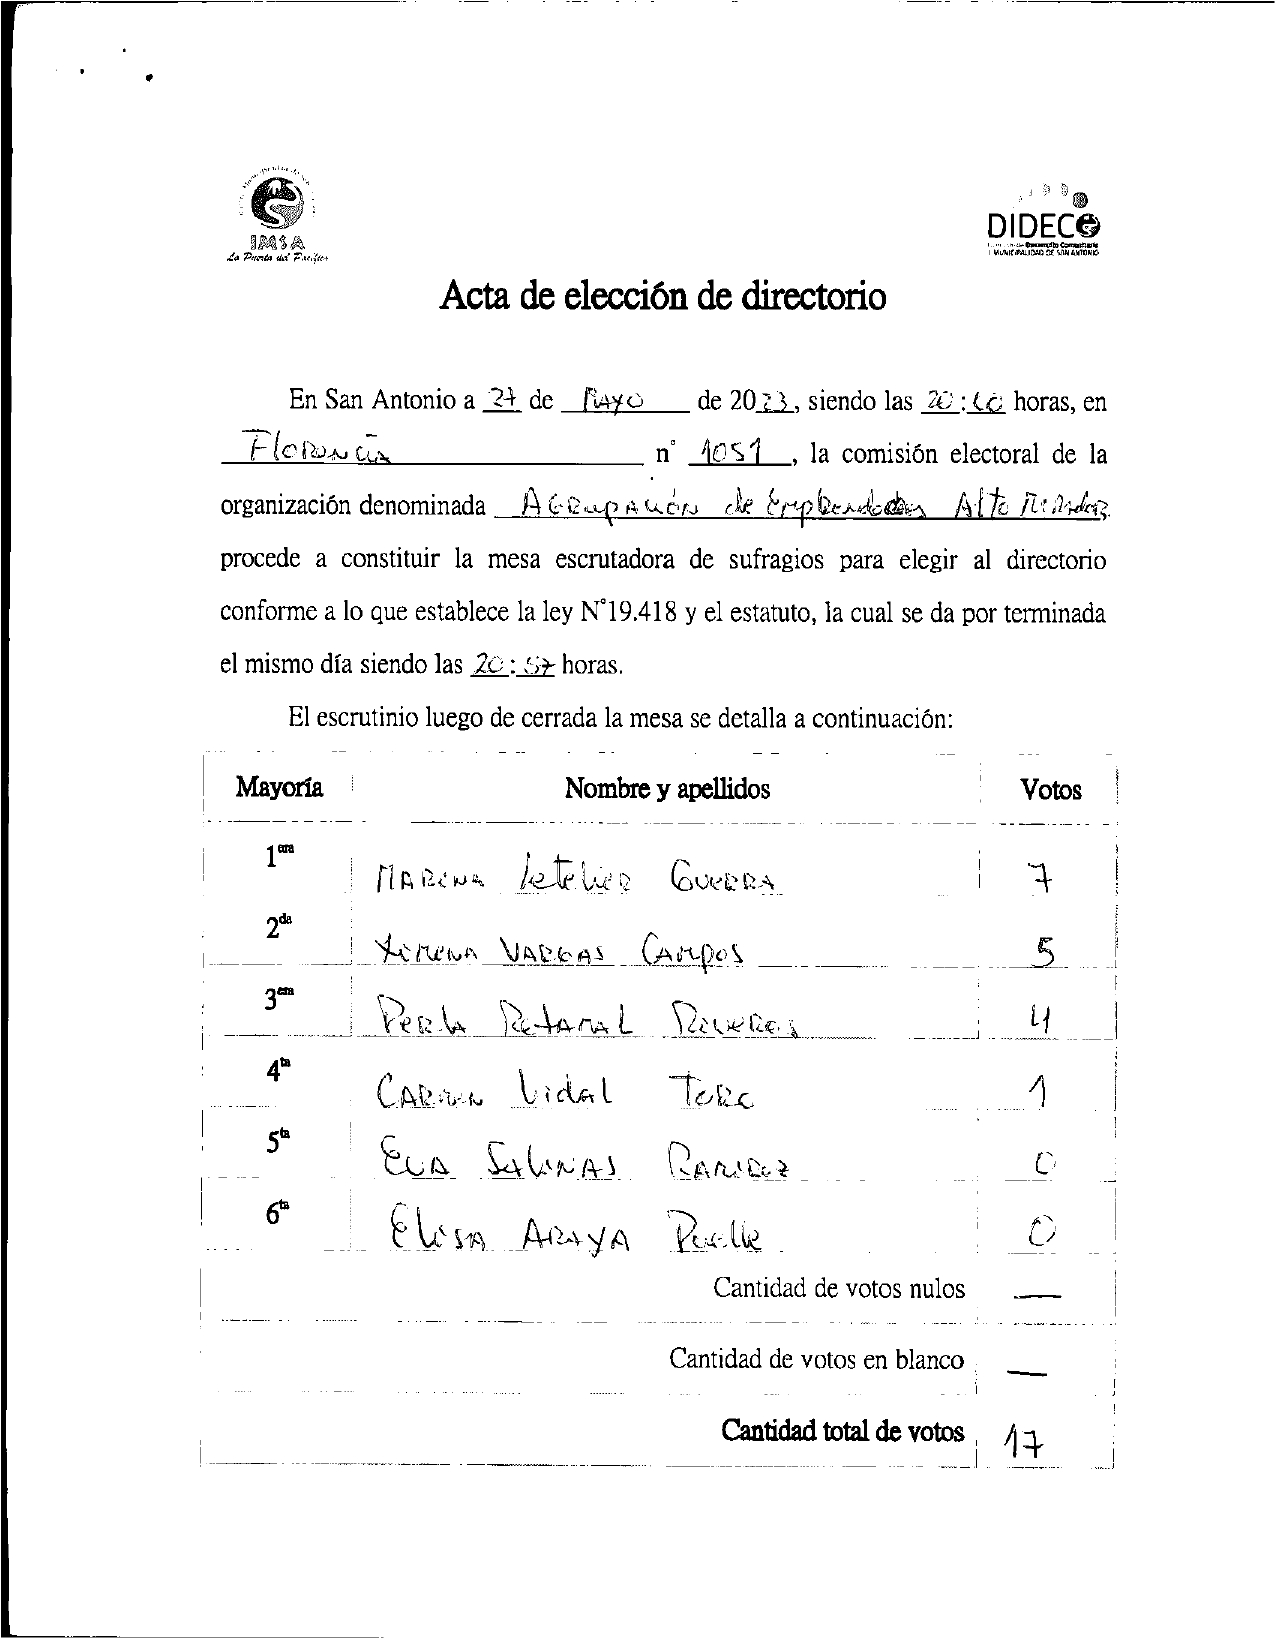 IMSA
La Puerta del Pacífico
DIDECO
Desarrollo Comunitario
I MUNICIPALIDAD DE SAN ANTONIO
Acta de elección de directorio
En San Antonio a 27 de Mayo de 2023, siendo las 20:10 horas, en
Florencia n° 1051, la comisión electoral de la
organización denominada Agrupación de Emprendedores Alto
procede a constituir la mesa escrutadora de sufragios para elegir al directorio
conforme a lo que establece la ley N°19.418 y el estatuto, la cual se da por terminada
el mismo día siendo las 20:57 horas.
El escrutinio luego de cerrada la mesa se detalla a continuación:
Mayoría Nombre y apellidos Votos
1era Marina Letelier Guerra 7
2da Ximena Vargas Campos 5
3era Perla Retamal 4
4ta Carmen Vidal Toro 1
5ta Eva Salinas Ramirez 0
6ta Elisa Araya Puelle 0
Cantidad de votos nulos —
Cantidad de votos en blanco —
Cantidad total de votos 17